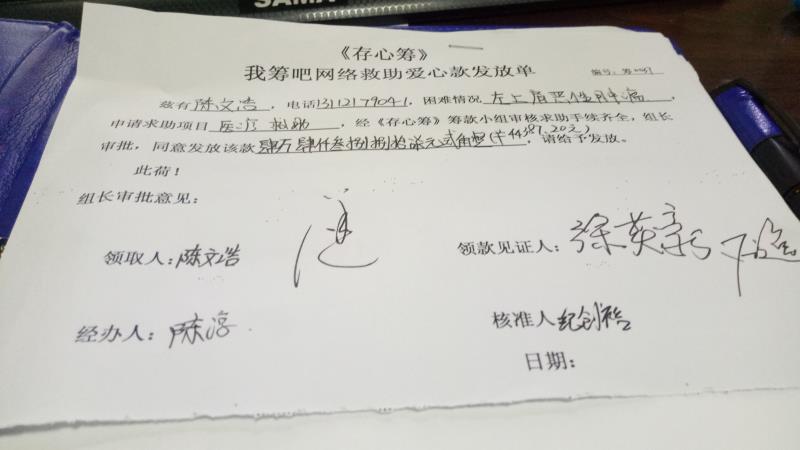 SAMA
《存心筹》
我筹吧网络救助爱心款发放单
编号：筹
兹有陈文浩，电话131217904-1，困难情况左上眉恶性肿瘤，
申请求助项目医疗救助，经《存心筹》筹款小组审核求助手续齐全，组长
审批，同意发放该款肆万肆仟叁捌捌拾柒元贰角整(¥44387.20元)，请给予发放。
此荷！
组长审批意见：
领取人：陈文浩
领款见证人：徐英
经办人：陈淳
核准人
日期：